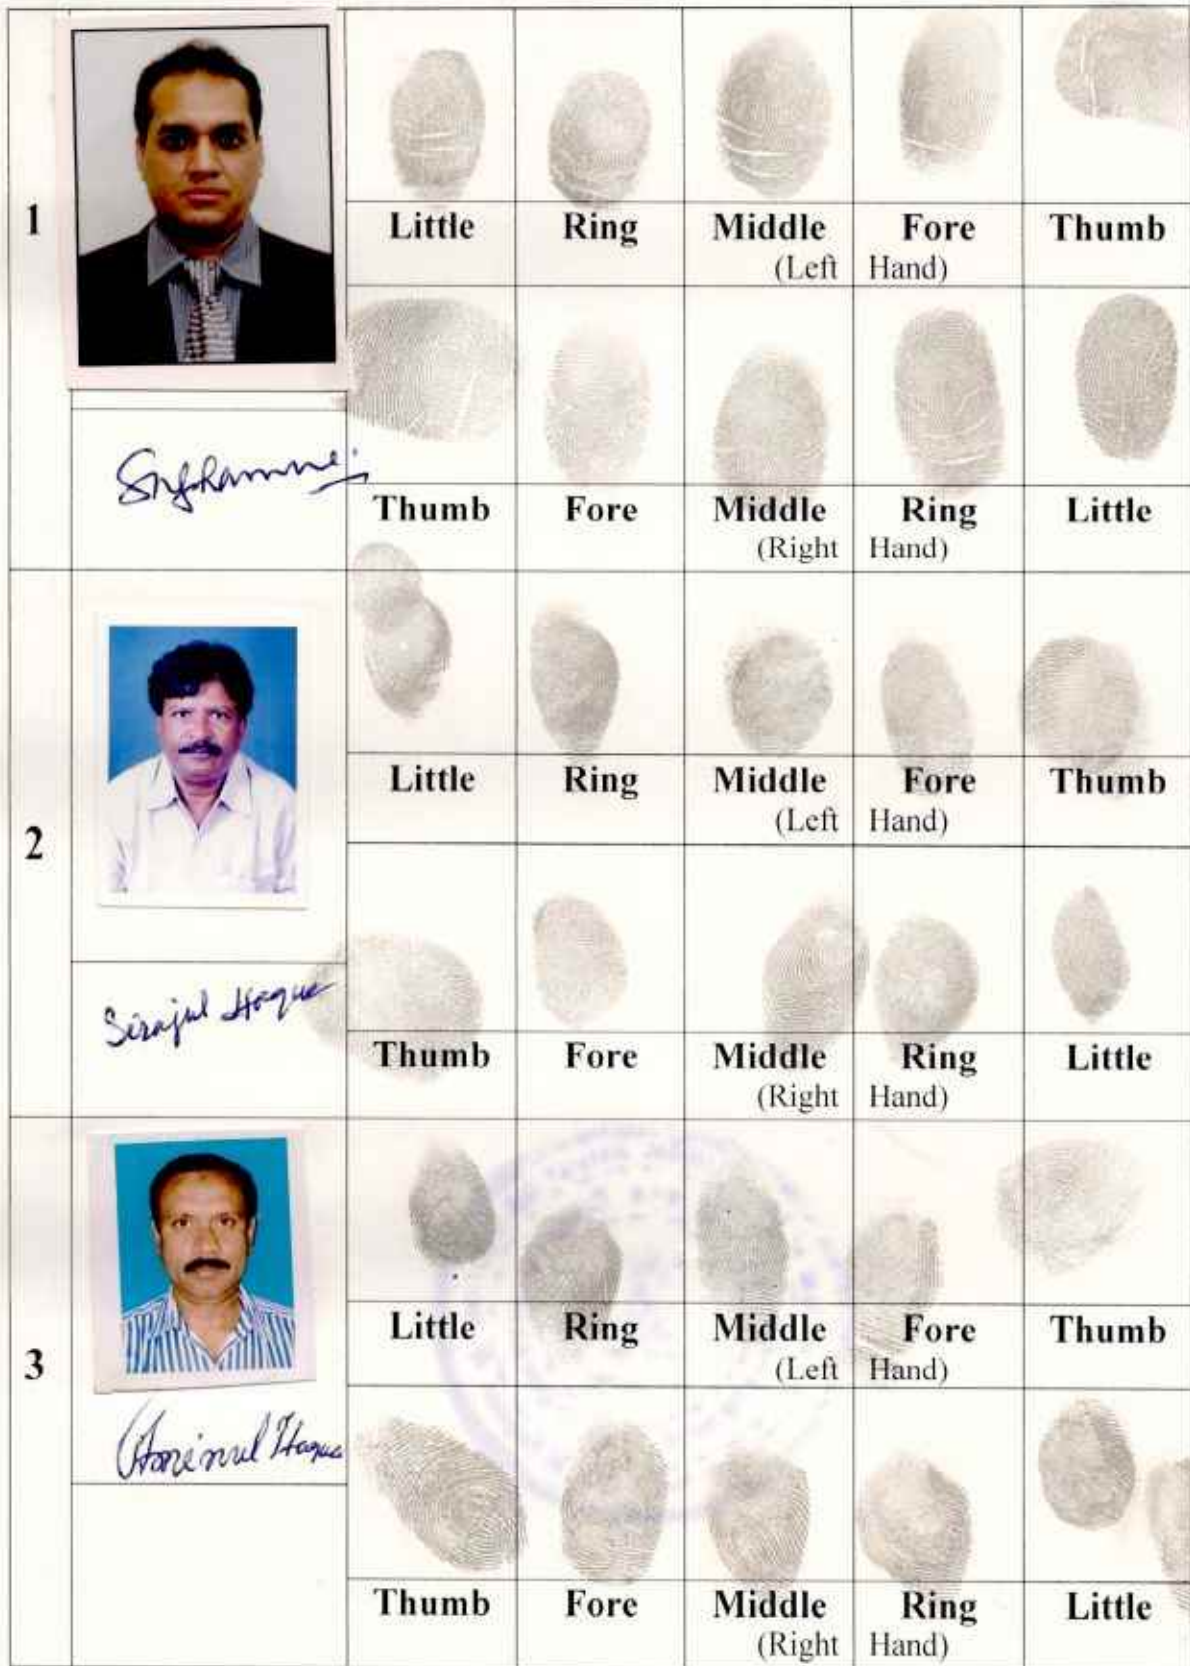 1
Little Ring Middle Fore Thumb
(Left Hand)
Thumb Fore Middle Ring Little
(Right Hand)
2
Little Ring Middle Fore Thumb
(Left Hand)
Sirajul Haque
Thumb Fore Middle Ring Little
(Right Hand)
3
Little Ring Middle Fore Thumb
(Left Hand)
Aminul Haque
Thumb Fore Middle Ring Little
(Right Hand)